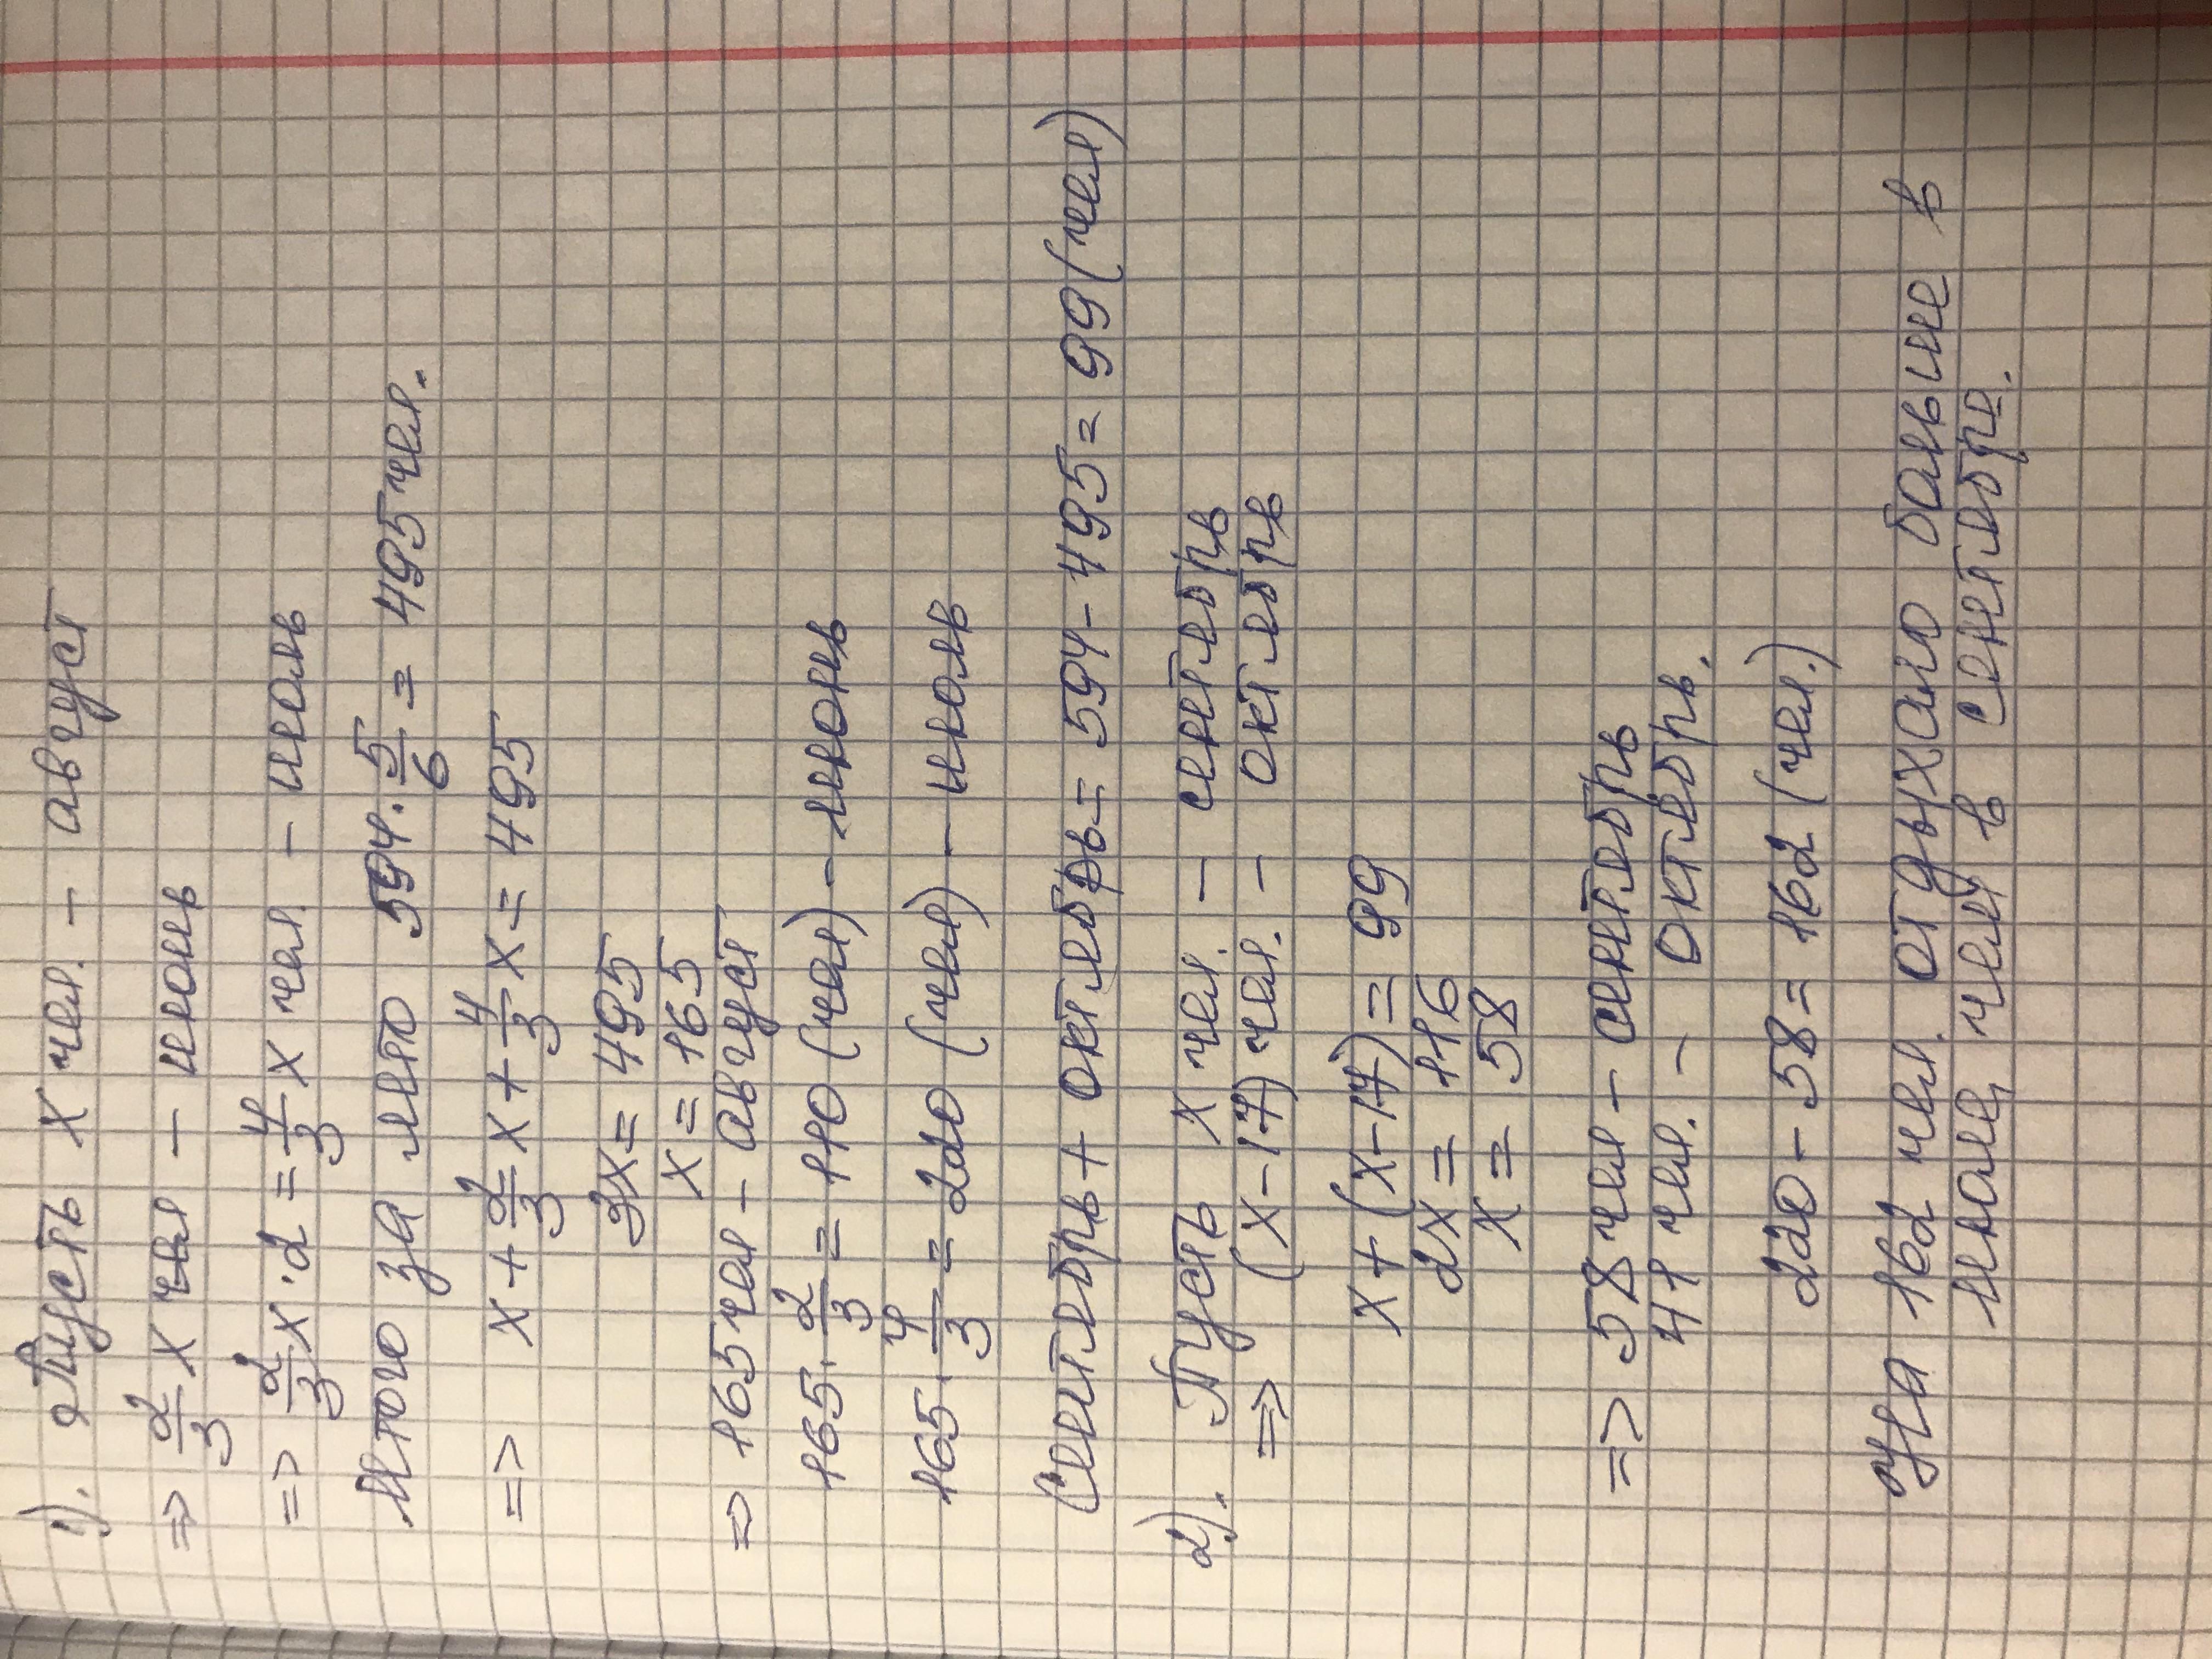 1). Пусть x чел. - август
=> 2/3 x чел - июнь
=> 2/3 x · 2 = 4/3 x чел - июль
Итого за лето 594 · 5/6 = 495 чел.
=> x + 2/3 x + 4/3 x = 495
3x = 495
x = 165
=> 165 чел - август
165 · 2/3 = 110 (чел) - июнь
165 · 4/3 = 220 (чел) - июль
Сентябрь + октябрь = 594 - 495 = 99 (чел)
2). Пусть x чел. - сентябрь
=> (x - 17) чел. - октябрь
x + (x - 17) = 99
2x = 116
x = 58
=> 58 чел - сентябрь
41 чел. - октябрь.
220 - 58 = 162 (чел.)
На 162 чел. отдыхало больше в
июле, чем в сентябре.